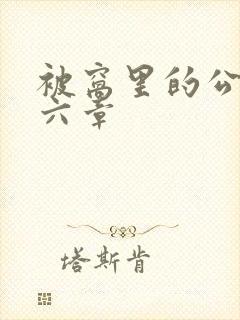 被窝里的公
六章
塔斯肯